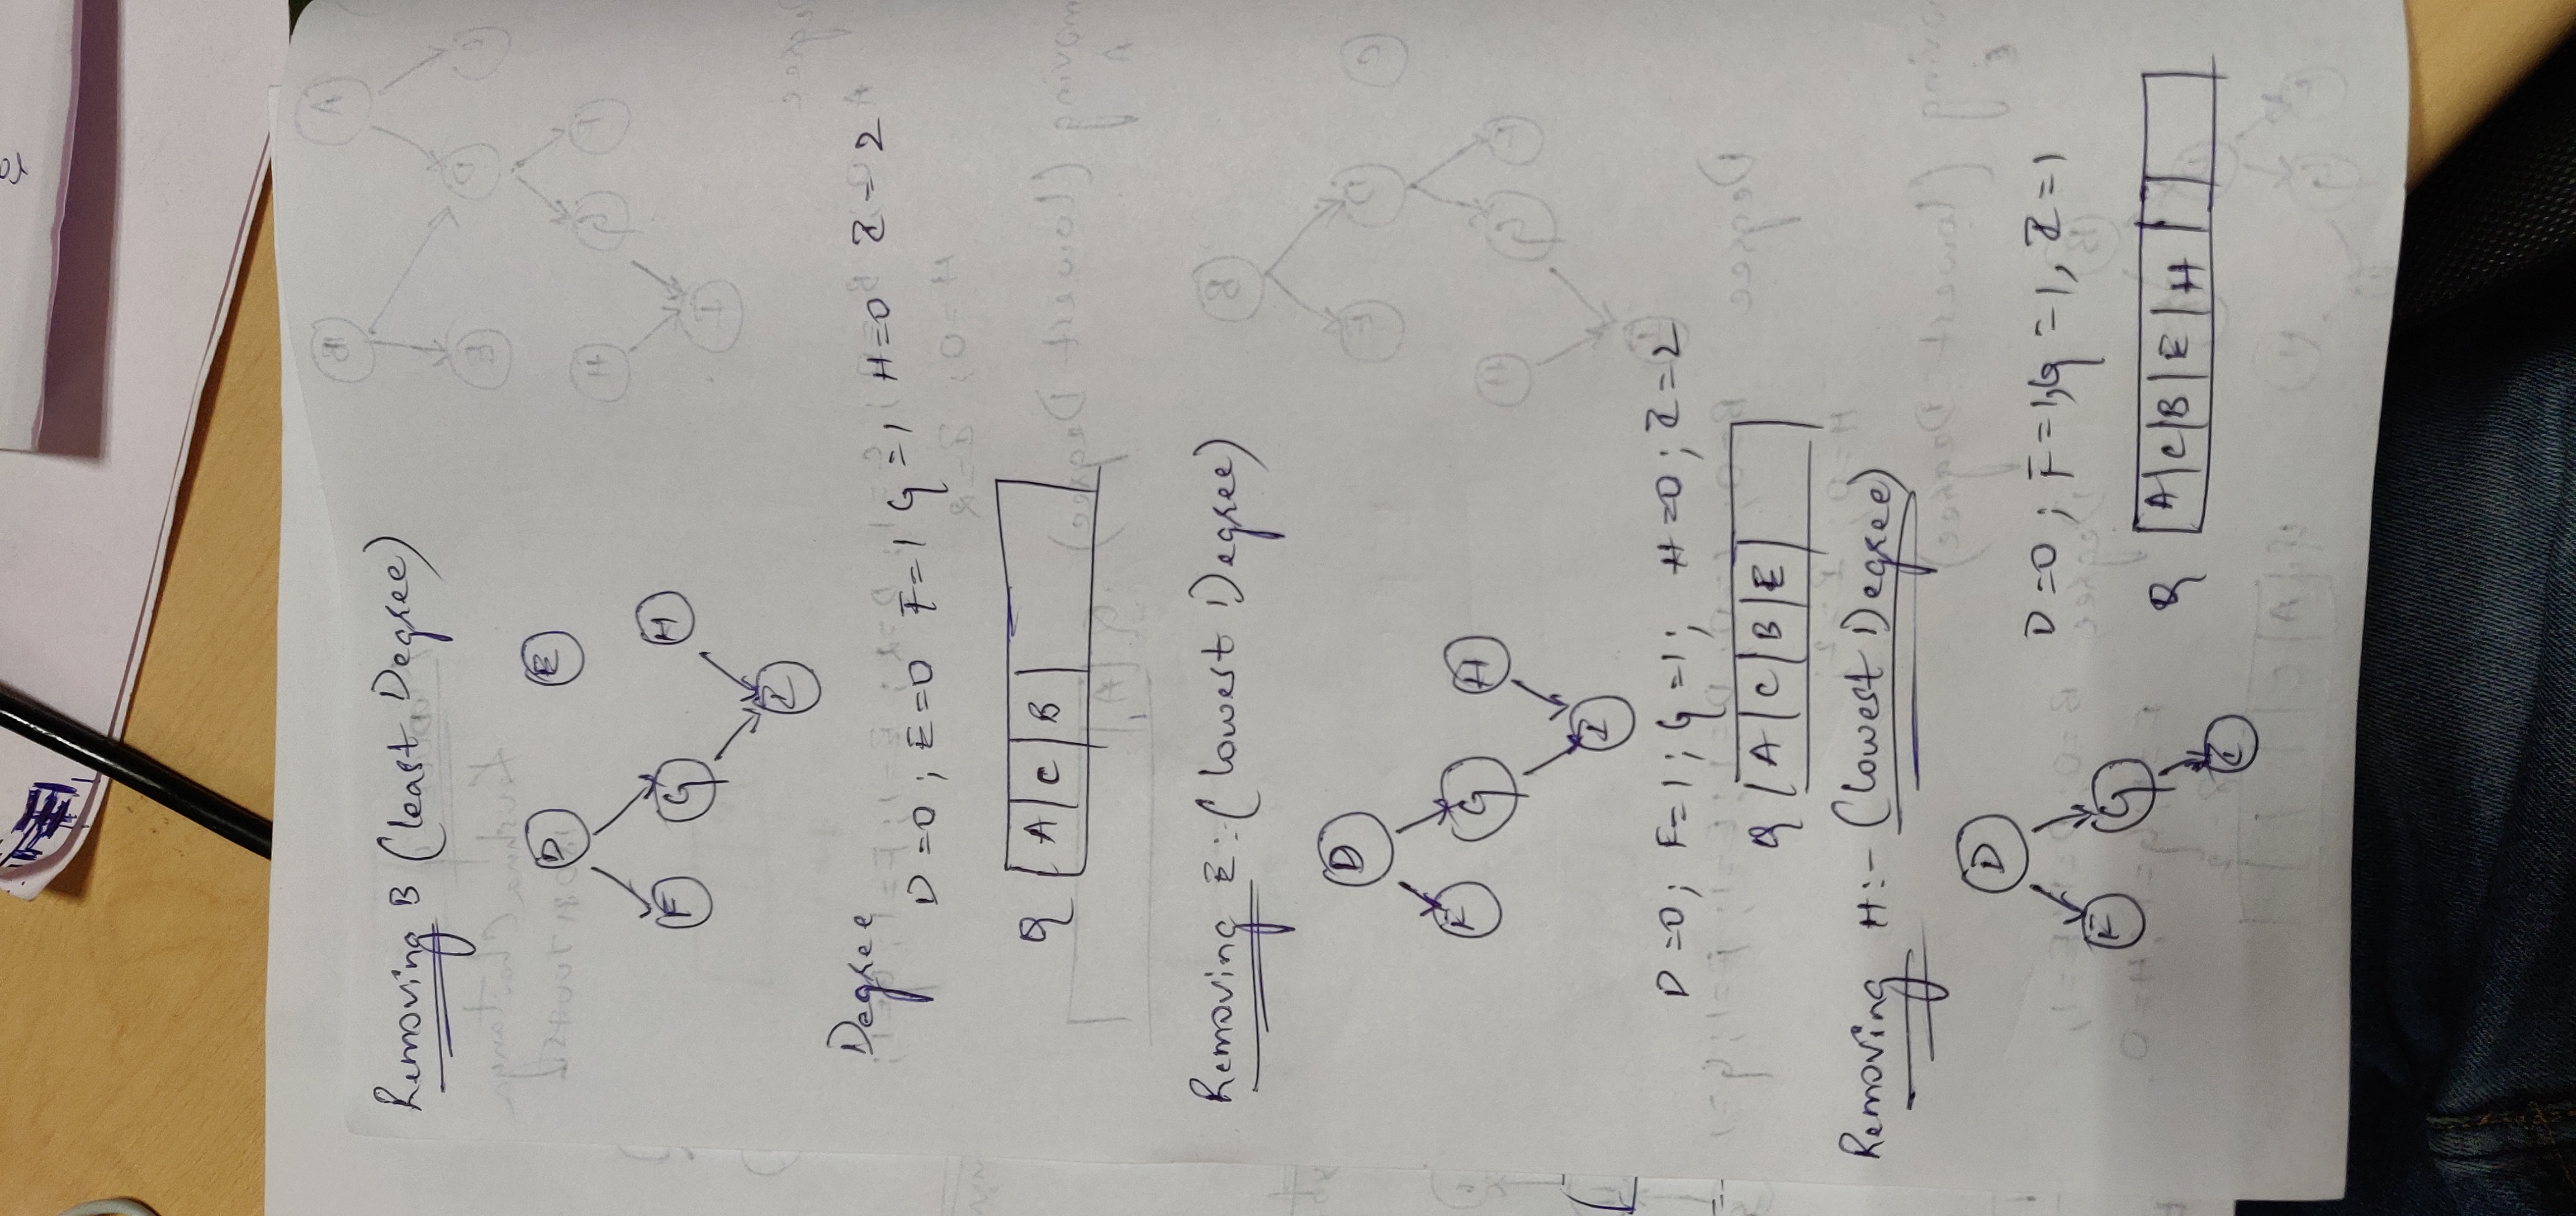 Removing B (least Degree)
D E
F G H
I
Degree
D = 0 ; E = 0 F = 1 G = 1 H = 0 I = 2
Q A C B
Removing E :- (lowest Degree)
D
F G H
I
D = 0 ; F = 1 ; G = 1 ; H = 0 ; I = 2
Q A C B E
Removing H :- (lowest Degree)
D
D = 0 ; F = 1, G = 1, I = 1
F G
Q A C B E H
I